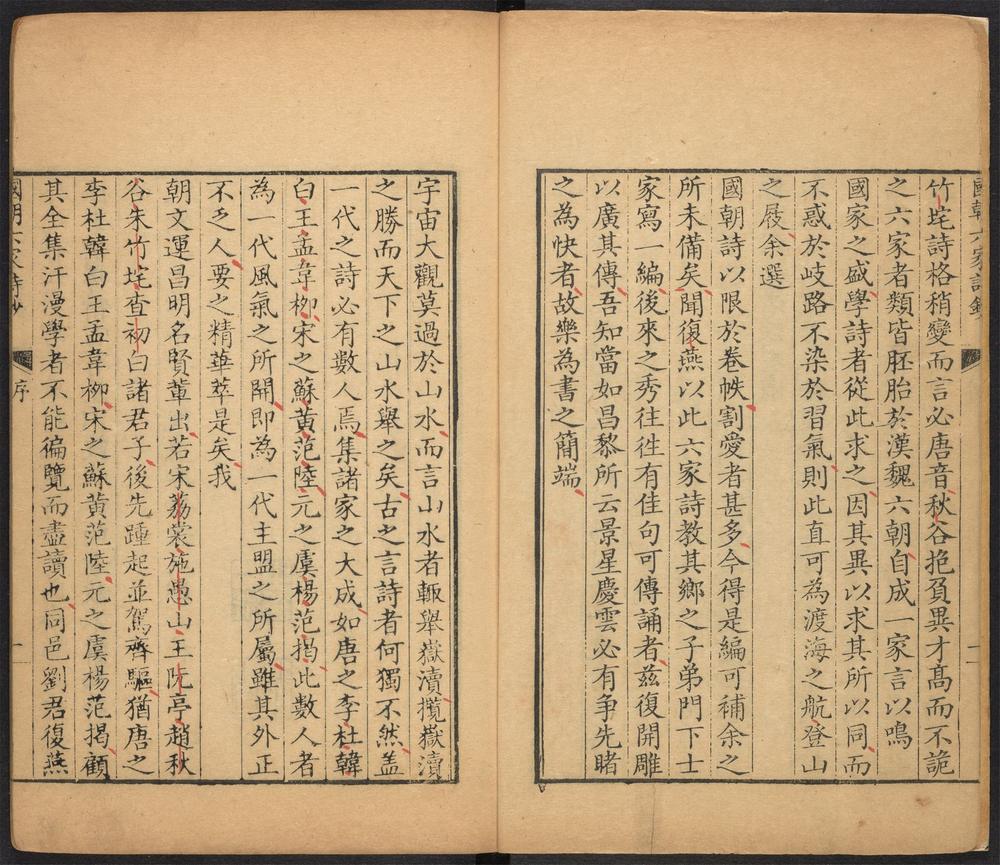 國朝六家詩鈔
二
竹垞詩格稍變而言必唐音秋谷抱負異才高而不詭
之六家者類皆胚胎於漢魏六朝自成一家言以鳴
國家之盛學詩者從此求之因其異以求其所以同而
不惑於歧路不染於習氣則此直可為渡海之航登山
之屐余選
國朝詩以限於卷帙割愛者甚多今得是編可補余之
所未備矣聞復燕以此六家詩教其鄉之子弟門下士
家寫一編後來之秀往往有佳句可傳誦者茲復開雕
以廣其傳吾知當如昌黎所云景星慶雲必有爭先睹
之為快者故樂為書之簡端
宇宙大觀莫過於山水而言山水者輒舉嶽瀆攬嶽瀆
之勝而天下之山水舉之矣古之言詩者何獨不然蓋
一代之詩必有數人焉集諸家之大成如唐之李杜韓
白王孟韋柳宋之蘇黃范陸元之虞楊范揭此數人者
為一代風氣之所開即為一代主盟之所屬雖其外正
不乏人要之精華萃是矣我
朝文運昌明名賢輩出若宋荔裳施愚山王阮亭趙秋
谷朱竹垞查初白諸君子後先踵起並駕齊驅猶唐之
李杜韓白王孟韋柳宋之蘇黃范陸元之虞楊范揭顧
其全集汗漫學者不能徧覽而盡讀也同邑劉君復燕
國朝六家詩鈔
序
一